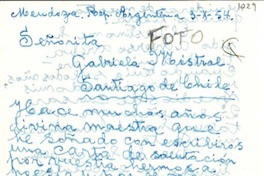 1029
Mendoza, Rep. Argentina 3-X-54.
Señorita
FOTO
Gabriela Mistral
Santiago de Chile
Hace muchos años
divina maestra que
he soñado con escribiros
una carta de salutación
por vuestra hermosa